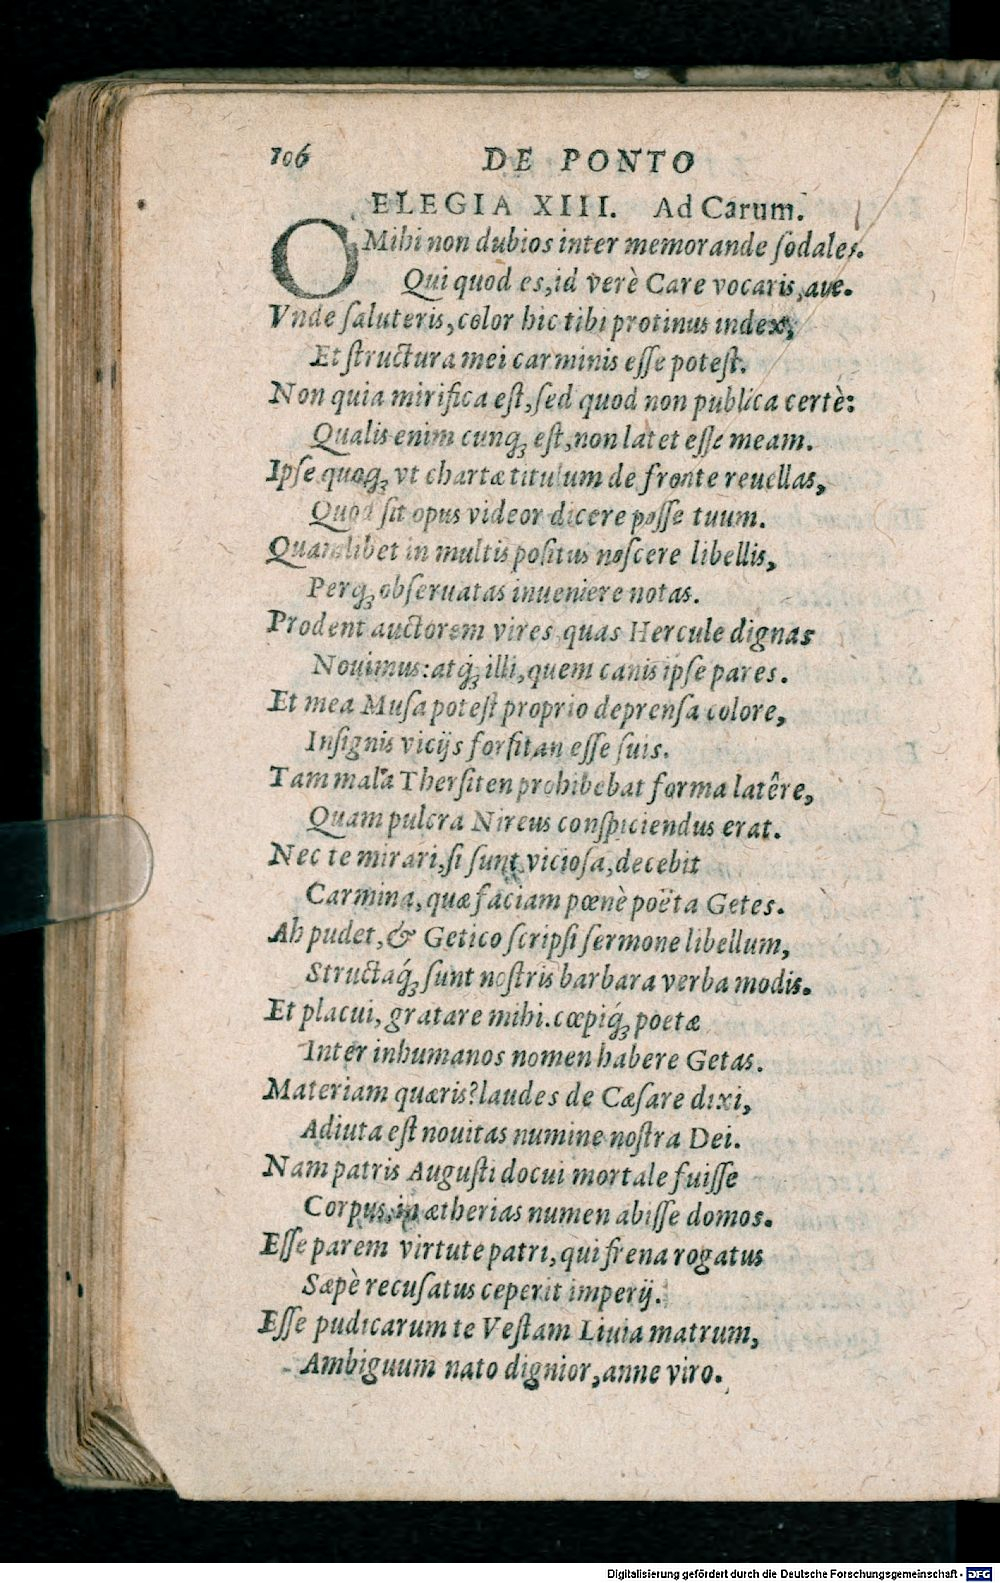 106 DE PONTO
ELEGIA XIII. Ad Carum.
O Mihi non dubios inter memorande ſodales.
Qui quod es, id verè Care vocaris, aue.
Vnde ſaluteris, color hic tibi protinus index,
Et ſtructura mei carminis eſſe poteſt.
Non quia mirifica eſt, ſed quod non publica certè:
Qualis enim cunqꝫ eſt, non latet eſſe meam.
Ipſe quoqꝫ vt chartæ titulum de fronte reuellas,
Quod ſit opus videor dicere poſſe tuum.
Quamlibet in multis poſitus noſcere libellis,
Perqꝫ obſeruatas inueniere notas.
Prodent auctorem vires quas Hercule dignas
Nouimus: atqꝫ́ illi, quem canis ipſe pares.
Et mea Muſa poteſt proprio deprenſa colore,
Inſignis vicijs forſitan eſſe ſuis.
Tam mala Therſiten prohibebat forma latêre,
Quam pulcra Nireus conſpiciendus erat.
Nec te mirari, ſi ſunt vicioſa, decebit
Carmina, quæ faciam pœnè poëta Getes.
Ah pudet, & Getico ſcripſi ſermone libellum,
Structaqꝫ́ ſunt noſtris barbara verba modis.
Et placui, gratare mihi. cœpiqꝫ́ poetæ
Inter inhumanos nomen habere Getas.
Materiam quæris? laudes de Cæſare dixi,
Adiuta eſt nouitas numine noſtra Dei.
Nam patris Auguſti docui mortale fuiſſe
Corpus, in ætherias numen abiſſe domos.
Eſſe parem virtute patri, qui frena rogatus
Sæpè recuſatus ceperit imperij.
Eſſe pudicarum te Veſtam Liuia matrum,
Ambiguum nato dignior, anne viro.
Digitalisierung gefördert durch die Deutsche Forschungsgemeinschaft - DFG